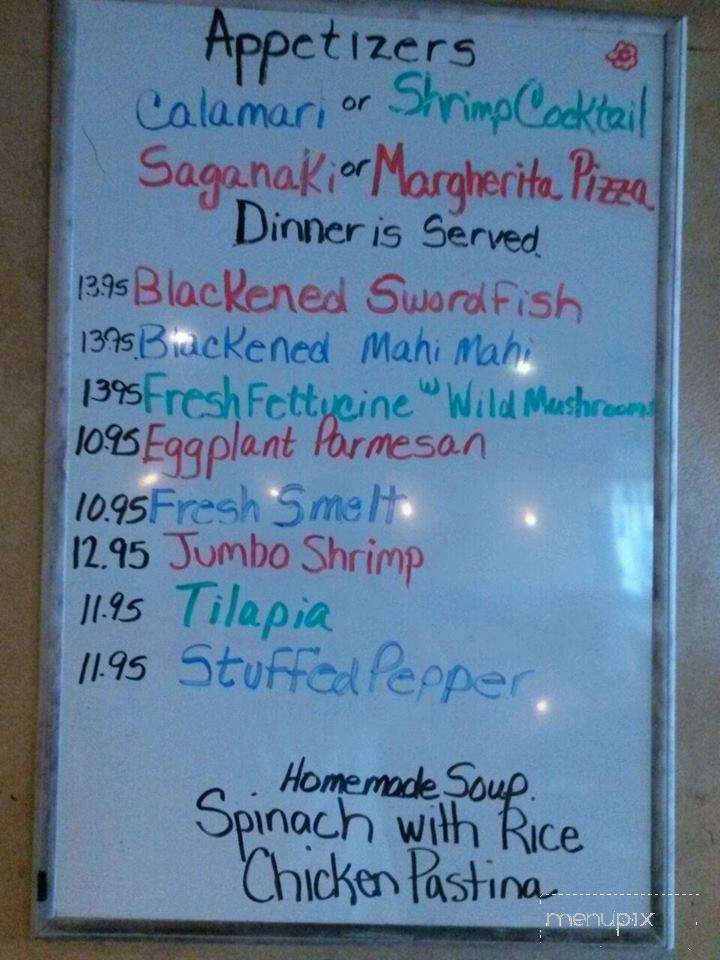 Appetizers
Calamari or Shrimp Cocktail
Saganaki or Margherita Pizza
Dinner is Served.
13.95 Blackened Swordfish
13.95 Blackened Mahi Mahi
1395 Fresh Fettucine w Wild Mushrooms
10.95 Eggplant Parmesan
10.95 Fresh Smelt
12.95 Jumbo Shrimp
11.95 Tilapia
11.95 Stuffed Pepper
Homemade Soup.
Spinach with Rice
Chicken Pastina
menupix